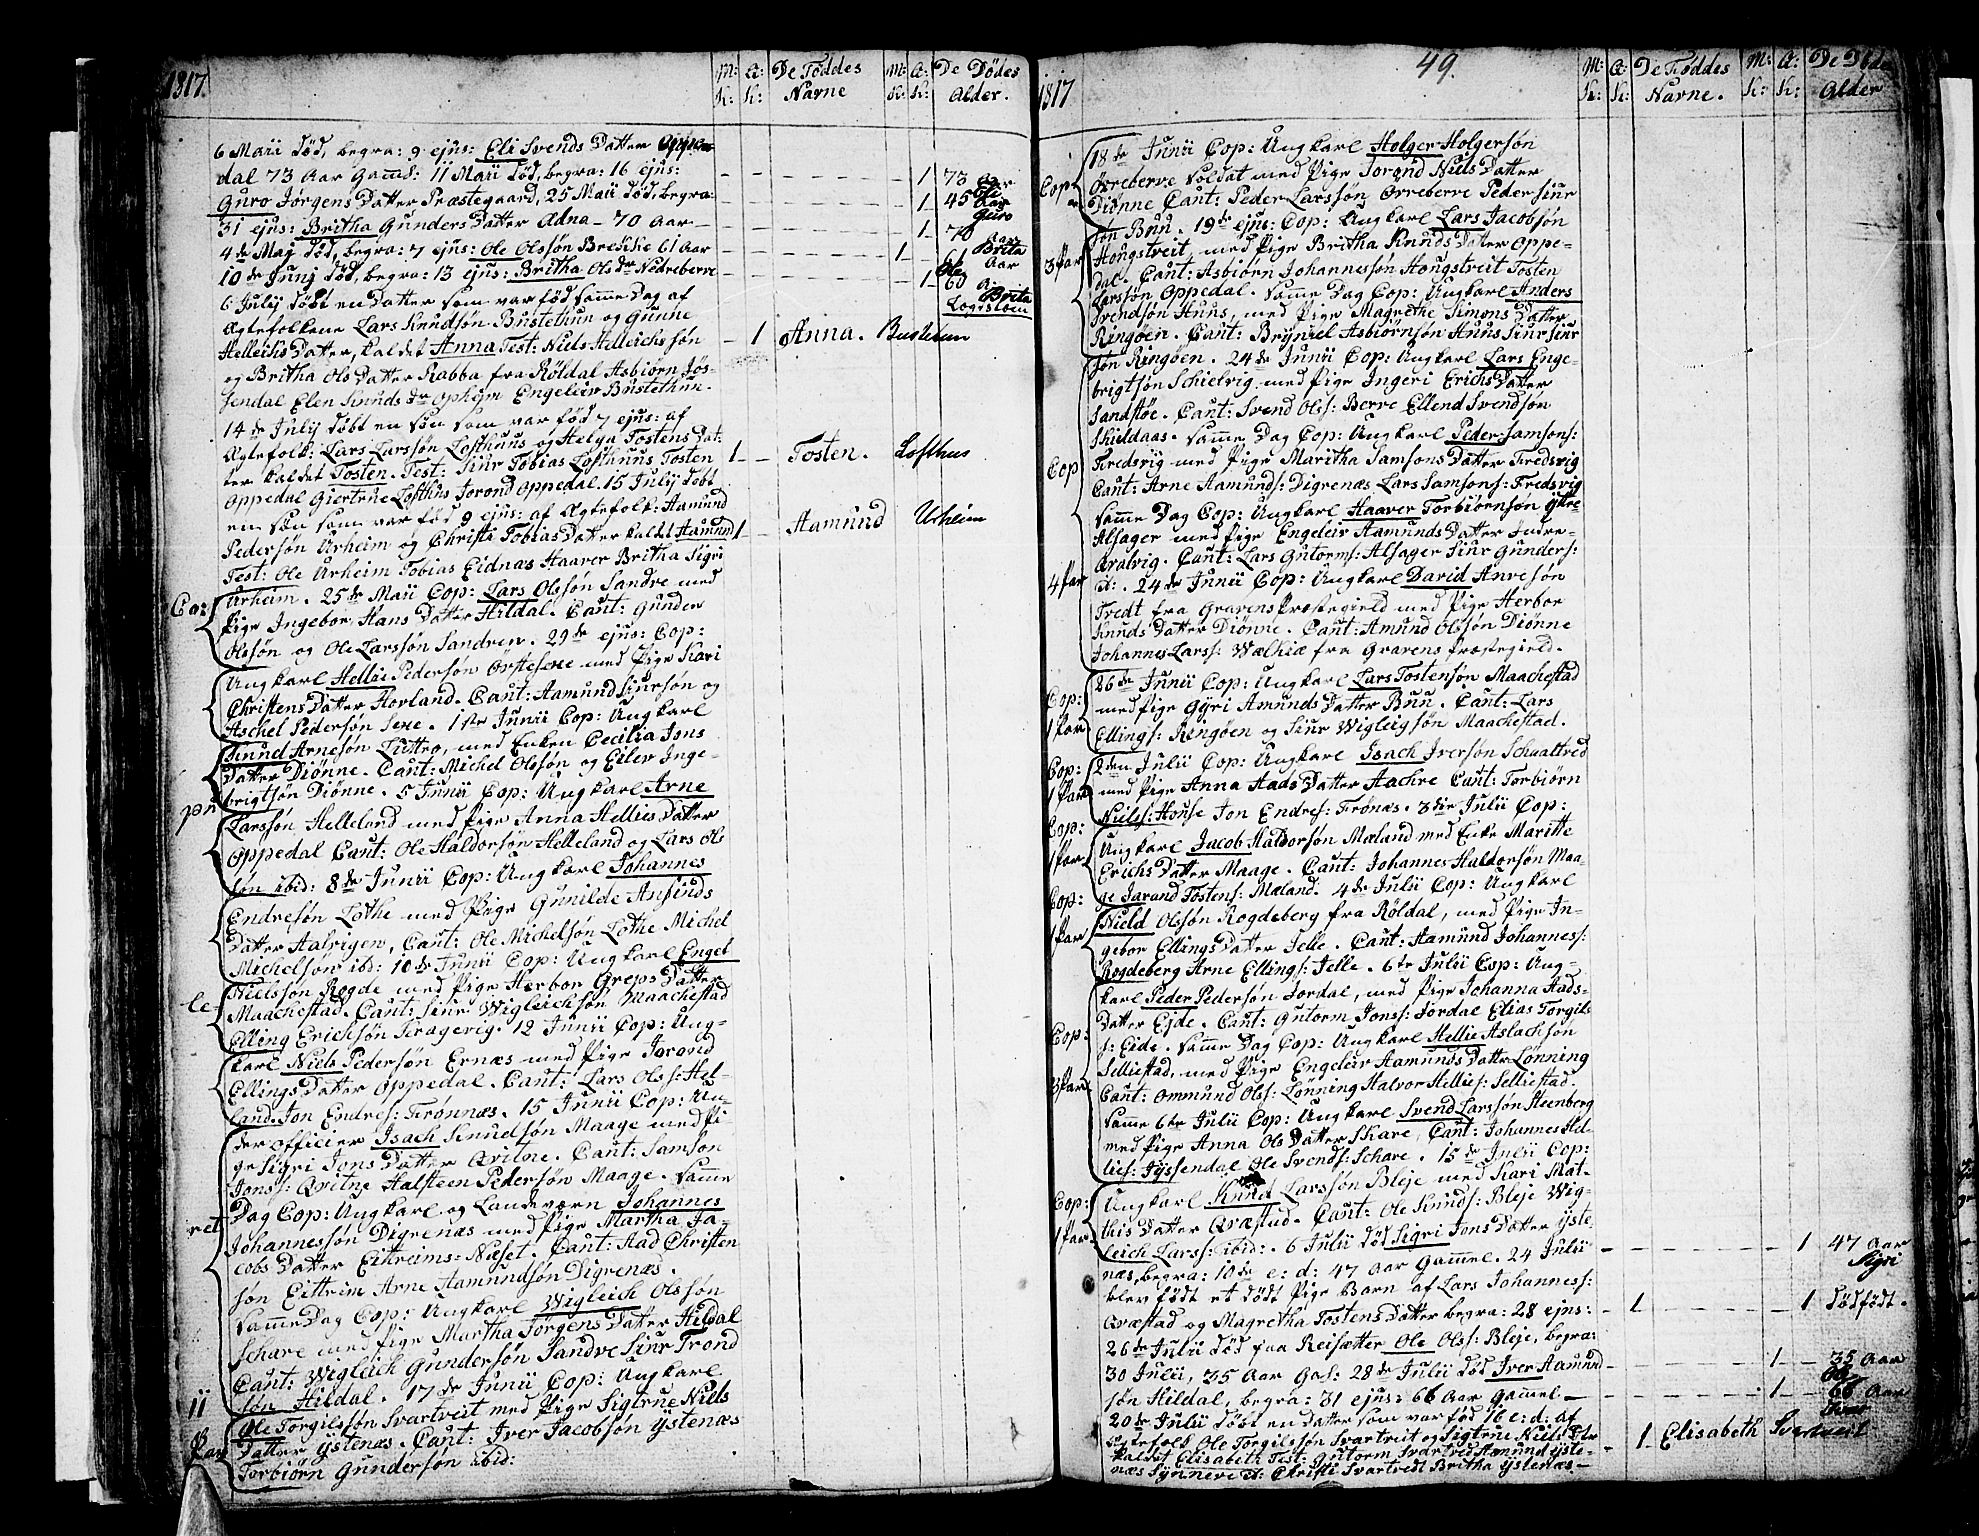 1817.
M: A: De Föddes M: A: De Dödes
K: K: Navne K: K: Alder.
6 Maii död, begra: 9 ejus: Eli Svends Datter Oppe
dal 73 Aar Gamī: 11 Maii död, begra: 16 ejus: 1 73 Aar
Eli
Guro Jörgens Datter Præstegaard, 25 Maii död, begra: 1 45 Aar
Guro
31 ejus: Britha Gunders Datter Adna - 70 Aar - 1 70 Aar
Brita
4 de Maj död, begra: 7 ejus: Ole Olssön Breisie 61 Aar 1 61 Aar
Ole
10 de Junj död, begra: 13 ejus: Britha Ols dr Nedreberve 1 60 A:
Brita
6 Julij döbt en Datter som var föd samme Dag af
Ægtefolkene Lars Knudsön Bustethun og Gunne
Helleichs Datter, kaldet Anna Test: Niels Helleichssön 1 Anna. Bustetun
og Britha Ols Datter Rabba fra Röldal Asbiörn Jös-
sendal Elen Knuds dr Ophejm Engeleir Büstethun.
14 de Julij döbt en sön som var föd 7 ejus: af
Ægtefolk: Lars Larssön Lofthuus og Helga Tostens Dat:
ter kaldet Tosten. Test: Siur Tobias Lofthuus Tosten 1 Tosten. Lofthus
Oppedal Giertrue Lofthus Jorond Oppedal. 15 Julij döbt
en sön som var föd 9 ejus: af Ægtefolk: Aamund
Pedersön Urheim og Christi Tobias Datter kaldet Aamund 1 Aamund Urheim
Test: Ole Urheim Tobias Eidnæs Haaver Britha Sigri
Co: Urheim. 25 de Maii Cop: Lars Olssön Sandre med
Pige Ingebor Hans Datter Hildal. Caut: Gunder
Olssön og Ole Larssön Sandven. 29 de ejus: Cop:
Ungkarl Hellie Pedersön Orstesexe med Pige Kari
Christens Datter Hovland. Caut: Aamund Siursön og
Aschel Pedersön Sexe. 1 ste Junii Cop: Ungkarl
Knud Arnesön Luttro, med Enken Cecilia Jons
Datter Diönne. Caut: Michel Olssön og Eiler Inge-
brigtsön Diönne. 5 Junii Cop: Ungkarl Arne
Larssön Helleland med Pige Anna Hellies Datter
Oppedal Caut: Ole Haldorsön Helleland og Lars Ols
sön ibid: 8 de Junii Cop: Ungkarl Johannes
Endresön Lothe med Pige Gunilde Ansinds
Datter Aalvigen, Caut: Ole Michelsön Lothe Michel
Michelsön ibd: 10 de Junii Cop: Ungkarl Engel
Nielssön Rogde med Pige Herbor Greps Datter
Maachestad. Caut: Siur Wigleichsön Maachestad
Elling Erichsön Kragevig. 12 Junii Cop: Ung-
karl Niels Pedersön Ernæs med Pige Jorond
Ellings Datter Oppedal. Caut: Lars Olss: Hel-
land. Jon Endres: Trönnæs. 15 Junii Cop: Un-
der officier Isach Knudsön Maage med Pi-
ge Sigri Jons Datter Qvitne. Caut: Samson
Jonss: Qvitne Halsteen Pedersön Maage. Samme
Dag Cop: Ungkarl og Landværn Johannes
Johannessön Digrenæs med Pige Martha Ja-
cobs Datter Eitreims: Næset. Caut: Aad Christen
sön Eittrim Arne Aamundsön Digrenæs.
Samme Dag Cop: Ungkarl Wigleich Olssön
Schare med Pige Martha Jörgens Datter Hildal
Caut: Wigleich Gundersön Sandve Siur Trond
sön Hildal. 17 de Junii Cop: Ungkarl
11 Par Ole Torgilssön Svartveit med Pige Sigtrue Niels
Datter Ystenæs. Caut: Iver Jacobsön Ystenæs
Torbiörn Gundersön ibid:
1817 49.
M: A: De Föddes M: A: De Döde
K: K: Navne. K: K: Alder
18 de Junii Cop: Ungkarl Holger Holgersön
Cop Örreberve Soldat med Pige Jorond Niels Datter
Diönne Caut: Peder Larssön Örreberve Peder Siur
sön Buu. 19 de ejus: Cop: Ungkarl Lars Jacobsön
3 Par Hougstveit, med Pige Britha Knuds Datter Oppe-
dal. Caut: Asbiörn Johannessön Hougstveit Tosten
Larssön Oppedal. Samme Dag Cop: Ungkarl Anders
Svendsön Huus, med Pige Magrethe Simons Datter
Ringöen. Caut: Brÿniel Asbiörnsön Huus Siur Siur
sön Ringöen. 24 de Junii Cop: Ungkarl Lars Enge-
brigtsön Schielvig med Pige Ingeri Erichs Datter
Sandstöe. Caut: Svend Olss: Berve Ellend Svendsön
Skieldaas. Samme Dag Cop: Ungkarl Peder Samsons:
Cop Fredsviig med Pige Maritha Samsons Datter Fredsvig
Caut: Arne Aamunds: Digrenæs Lars Samsons: Fredsvig
Samme Dag Cop: Ungkarl Haaver Torbiörnsön Ÿttre-
Alsager med Pige Engeleir Aamunds Datter Indre-
Aralvig. Caut: Lars Gutorms: Alsager Siur Gunders:
4 Par it:. 24 de Junii Cop: Ungkarl David Anvesön
Tvedt fra Gravens Præstegield med Pige Herbor
Knuds Datter Diönne. Caut: Amund Olssön Diönne
Johannes Larss: Walhiæ fra Gravens Præstegield.
Cop: 26 de Junii Cop: Ungkarl Lars Tostensön Maachestad
1 Par med Pige Gÿri Amunds Datter Buu. Caut: Lars
Ellings: Ringöen og Siur Wigleigsön Maachestad.
Cop: 2 den Julii Cop: Ungkarl Isach Iversön Schaaltved
1 Par med Pige Anna Aads Datter Aachre Caut: Torbiörn
Nielss: House Jon Endres: Trönæs. 3 die Julii Cop:
Cop: 1 Par Ungkarl Jacob Haldorsön Mæland med Enke Maritte
Erichs Datter Maage. Caut: Johannes Haldorsön Maa-
Cop: ge Jarand Tostens: Mæland. 4 de Julii Cop: Ungkarl
1 Par Nield Olssön Rogdeberg fra Röldal, med Pige In-
gebor Ellings Datter Jelle. Caut: Aamund Johannes:
Rogdeberg Arne Ellings: Jelle. 6 te Julii Cop: Ung-
karl Peder Pedersön Jordal, med Pige Johanna Aads-
Cop: Datter Ejde. Caut: Gutorm Jonss: Jordal Elias Torgils
s: Eide. Samme Dag Cop: Ungkarl Hellie Aslachsön
3 Par Selliestad, med Pige Engeleir Aamunds Datter Lönning
Caut: Ommund Olss: Lönning Halvor Hellies: Selliestad.
Samme 6 te Julii Cop: Ungkarl Svend Larssön Steenberg
med Pige Anna Ols Datter Skare, Caut: Johannes Hel
lies: Jÿssendal Ole Svends: Schare. 15 de Julii Cop:
Cop: Ungkarl Knud Larssön Bleje med Kari Mat-
1 Par this Datter Qvæstad. Caut: Ole Knuds: Bleje Wig-
leich Larss: ibid:. 6 Julii död Sigri Jons Datter Ÿste
næs, begra: 10 de e: d: 47 Aar Gammel. 24 Julii 1 47 Aar
Sigri
blev födt et dödt Pige Barn af Lars Johanness:
Qvæstad og Magretha Tostens Datter begra: 28 ejus: 1 1 dödfödt.
26 de Julii död paa Reisætter Ole Olss: Bleje, begra:
30 Julii, 35 Aar Gas: 28 de Julii död Iver Aamund 1 35 Aar
Ole
sön Hildal, begra: 31 ejus: 66 Aar Gammel 1 66 Aar
Iver
20 de Julii döbt en Datter som var föd 16 e: d: af
Ægtefolk Ole Torgilssön Svartveit og Sigtrue Niels Dtr 1 Elisabeth Svartveit
kaldet Elisabeth Test: Gutorm Svartved Aamund Ÿste-
næs Sÿnneve it: Christi Svartvedt Britha Ÿstenæs